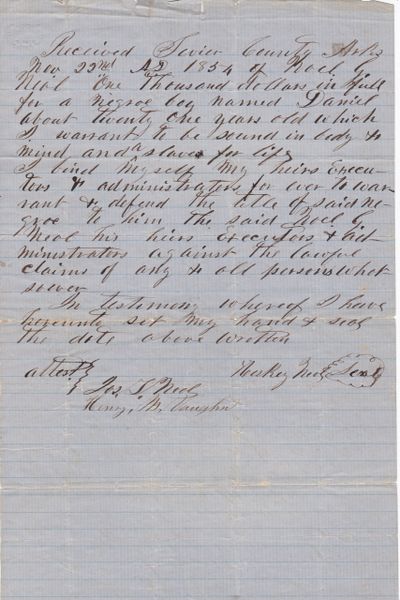 Received Sevier County Arks
Nov 22nd AD 1854 of Noel G
Neal One thousand dollars in full
for a negroe boy named Daniel
about twenty one years old which
I warrant to be sound in body &
mind and a slave for life
I bind myself My heirs Execu-
tors & administrators for ever to war-
rant & defend the title of said ne-
groe to him the said Noel G
Neal his heirs Executors & Ad-
ministrators against the lawful
claims of any & all persons what
soever
In testimony whereof I have
hereunto set my hand & seal
the date above written
attest Neal Seal
Jos Neal
Henry B. Vaughn